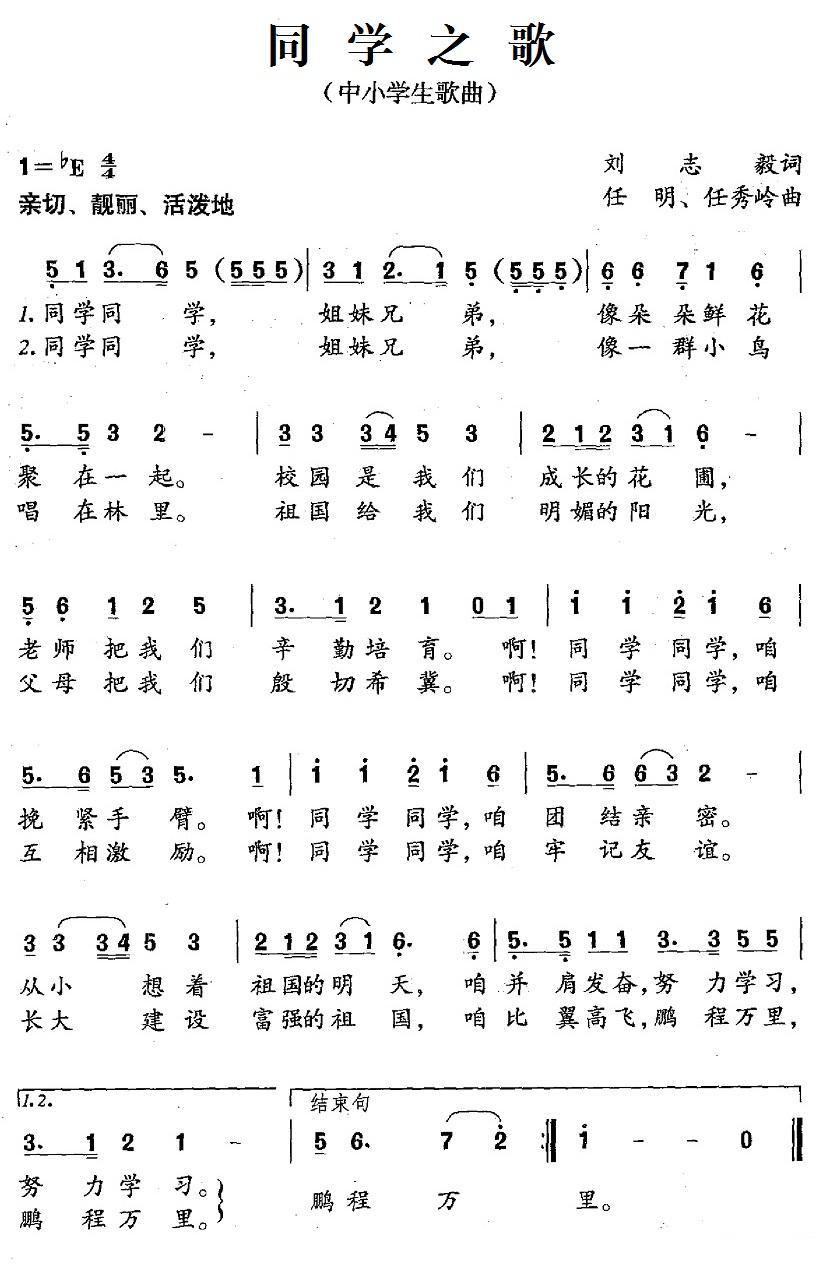 同学之歌
（中小学生歌曲）
1=♭E 4/4
刘志毅词
亲切、靓丽、活泼地
任明、任秀岭曲
5̣ 1 3. 6 5 (5 5 5) | 3 1 2. 1 5̣ (5̣ 5̣ 5̣) | 6̣ 6̣ 7̣ 1 6̣ |
1.同学同学，姐妹兄弟，像朵朵鲜花
2.同学同学，姐妹兄弟，像一群小鸟
5̣. 5̣ 3 2 - | 3 3 3 4 5 3 | 2 1 2 3 1 6̣ - |
聚在一起。校园是我们成长的花圃，
唱在林里。祖国给我们明媚的阳光，
5̣ 6̣ 1 2 5 | 3. 1 2 1 0 1 | i i 2̇ i 6 |
老师把我们辛勤培育。啊！同学同学，咱
父母把我们殷切希冀。啊！同学同学，咱
5. 6 5 3 5. 1 | i i 2̇ i 6 | 5. 6 6 3 2 - |
挽紧手臂。啊！同学同学，咱团结亲密。
互相激励。啊！同学同学，咱牢记友谊。
3 3 3 4 5 3 | 2 1 2 3 1 6̣. 6̣ | 5̣. 5̣ 1 1 3. 3 5 5
从小想着祖国的明天，咱并肩发奋，努力学习，
长大建设富强的祖国，咱比翼高飞，鹏程万里，
1.2.
结束句
3. 1 2 1 - | 5 6. 7 2̇ :‖ i - - 0 ‖
努力学习。
鹏程万里。
鹏程万里。